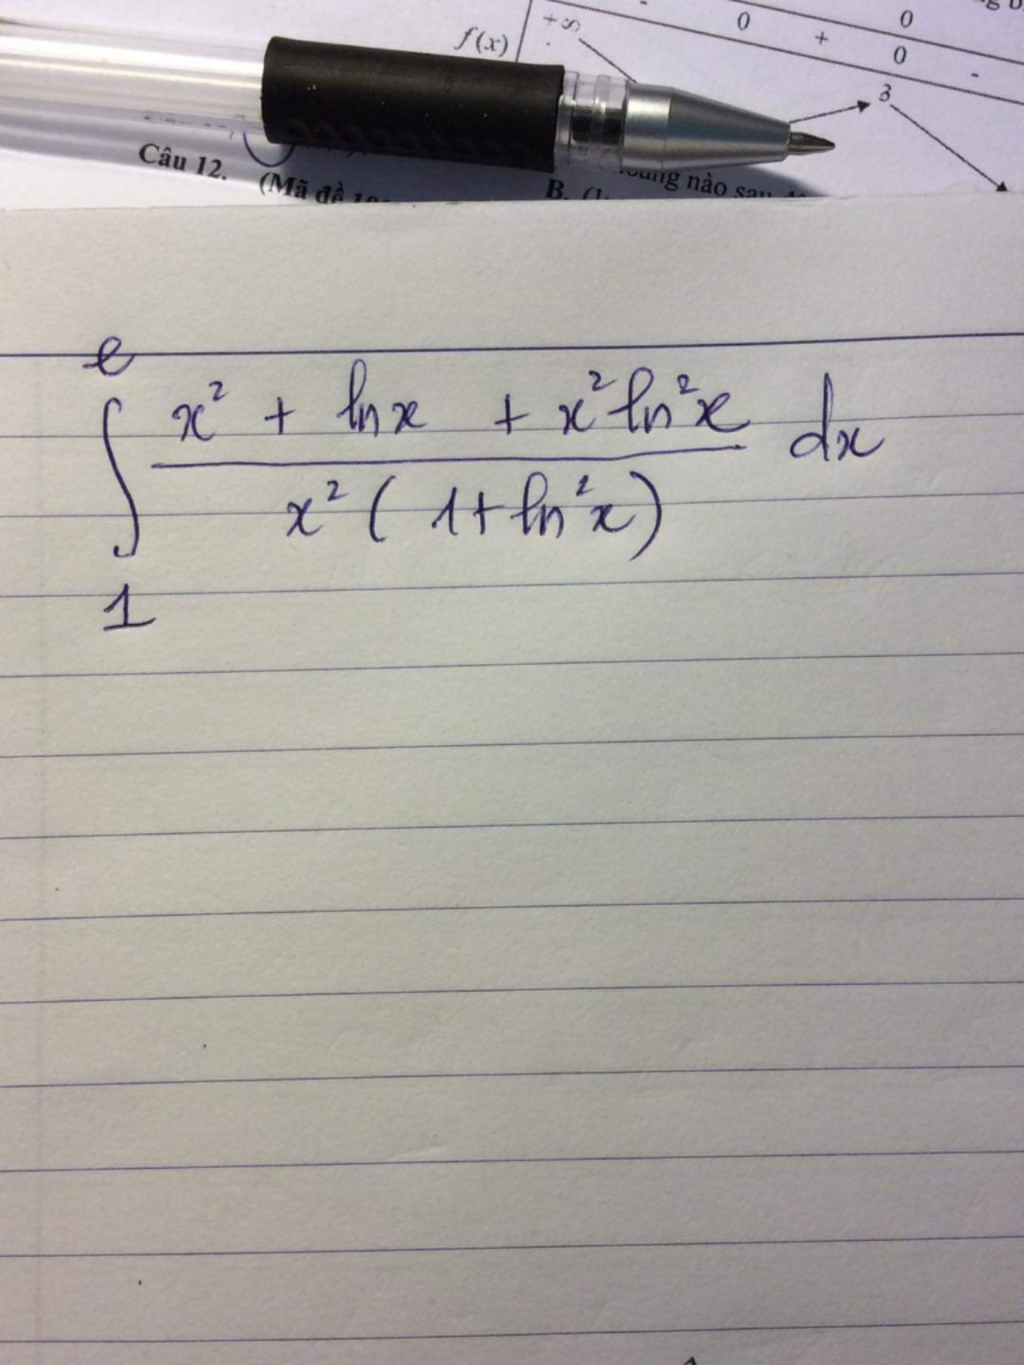 f(x) +∞ - 0 + 0 0 -
3
Câu 12. (Mã đề B. nào sau
e
∫ x² + ln x + x² ln²x dx
x² ( 1 + ln²x )
1